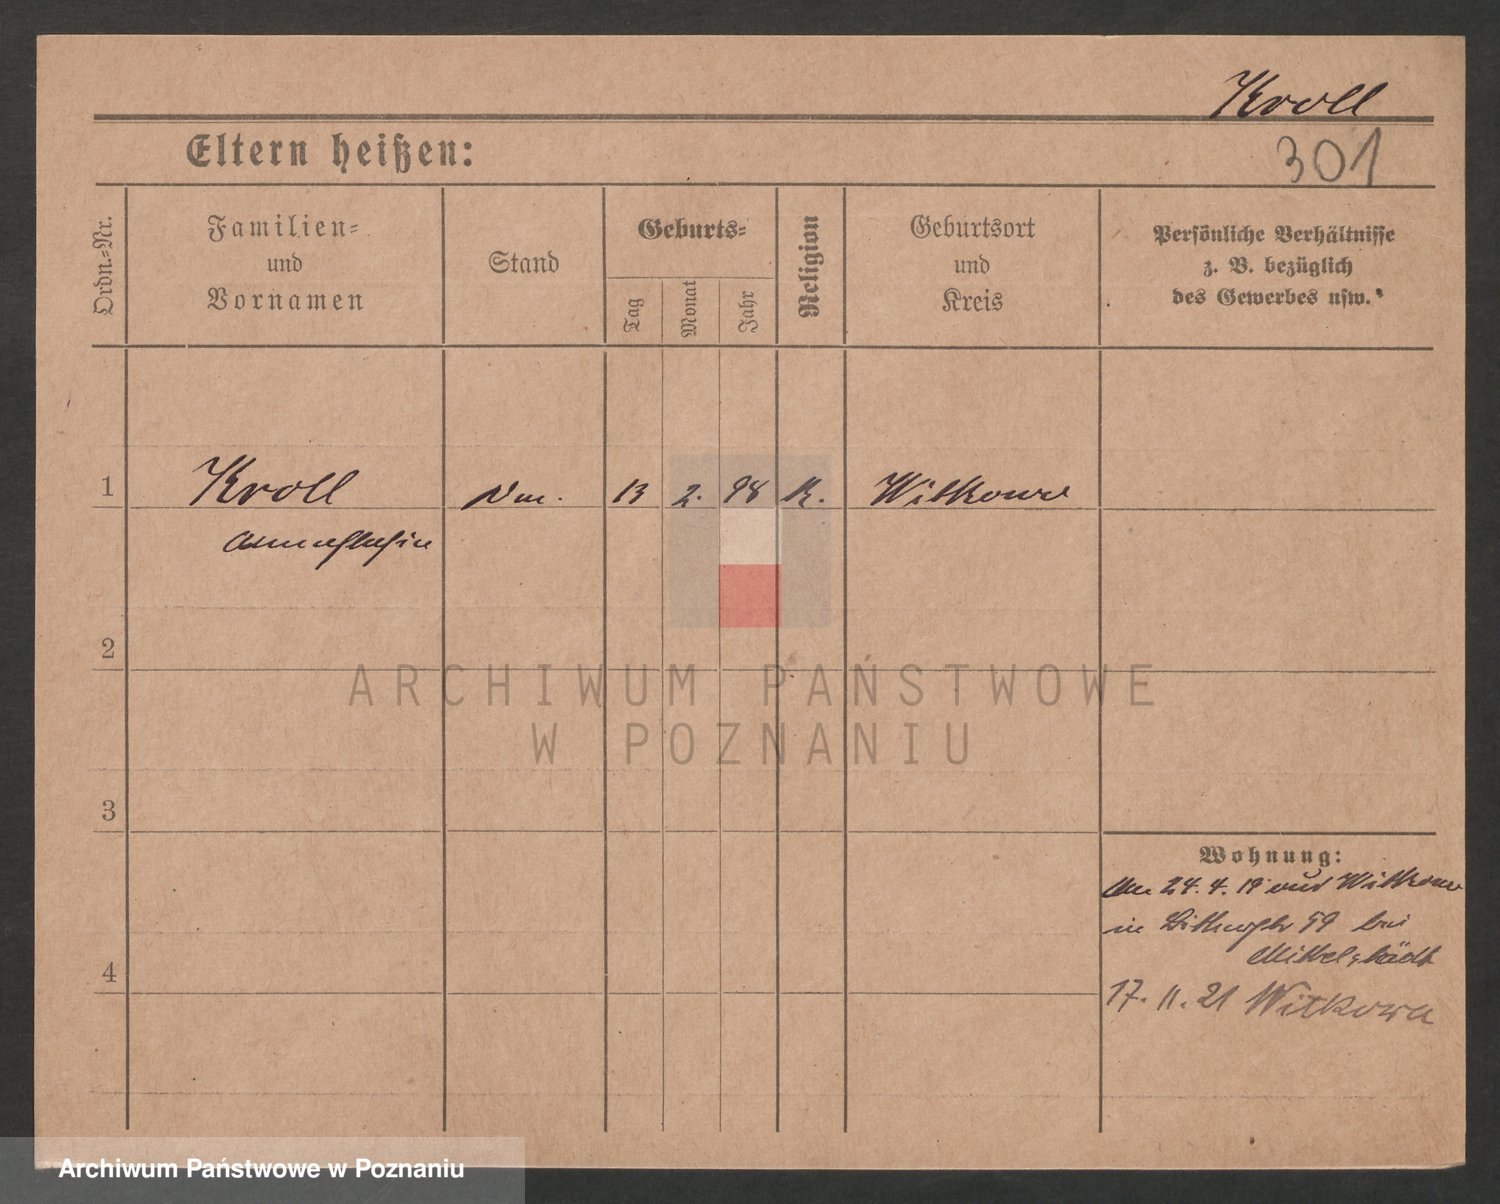 Kroll
301
Eltern heißen:
Ordn.-Nr.
Familien-
und
Vornamen
Stand
Geburts-
Tag
Monat
Jahr
Religion
Geburtsort
und
Kreis
Persönliche Verhältnisse
z. B. bezüglich
des Gewerbes usw.
1
Kroll
13
2.
98
K.
Witkowo
2
ARCHIWUM PAŃSTWOWE
W POZNANIU
3
Wohnung:
24.4.19 aus Witkowo
in 59 bei
Mittelstädt
4
17. 11. 21 Witkowo
Archiwum Państwowe w Poznaniu